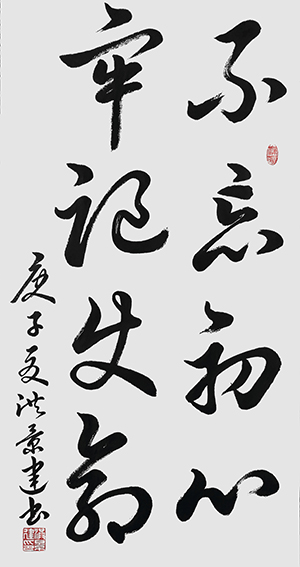 不忘初心
牢记使命
庚子夏洪景建书